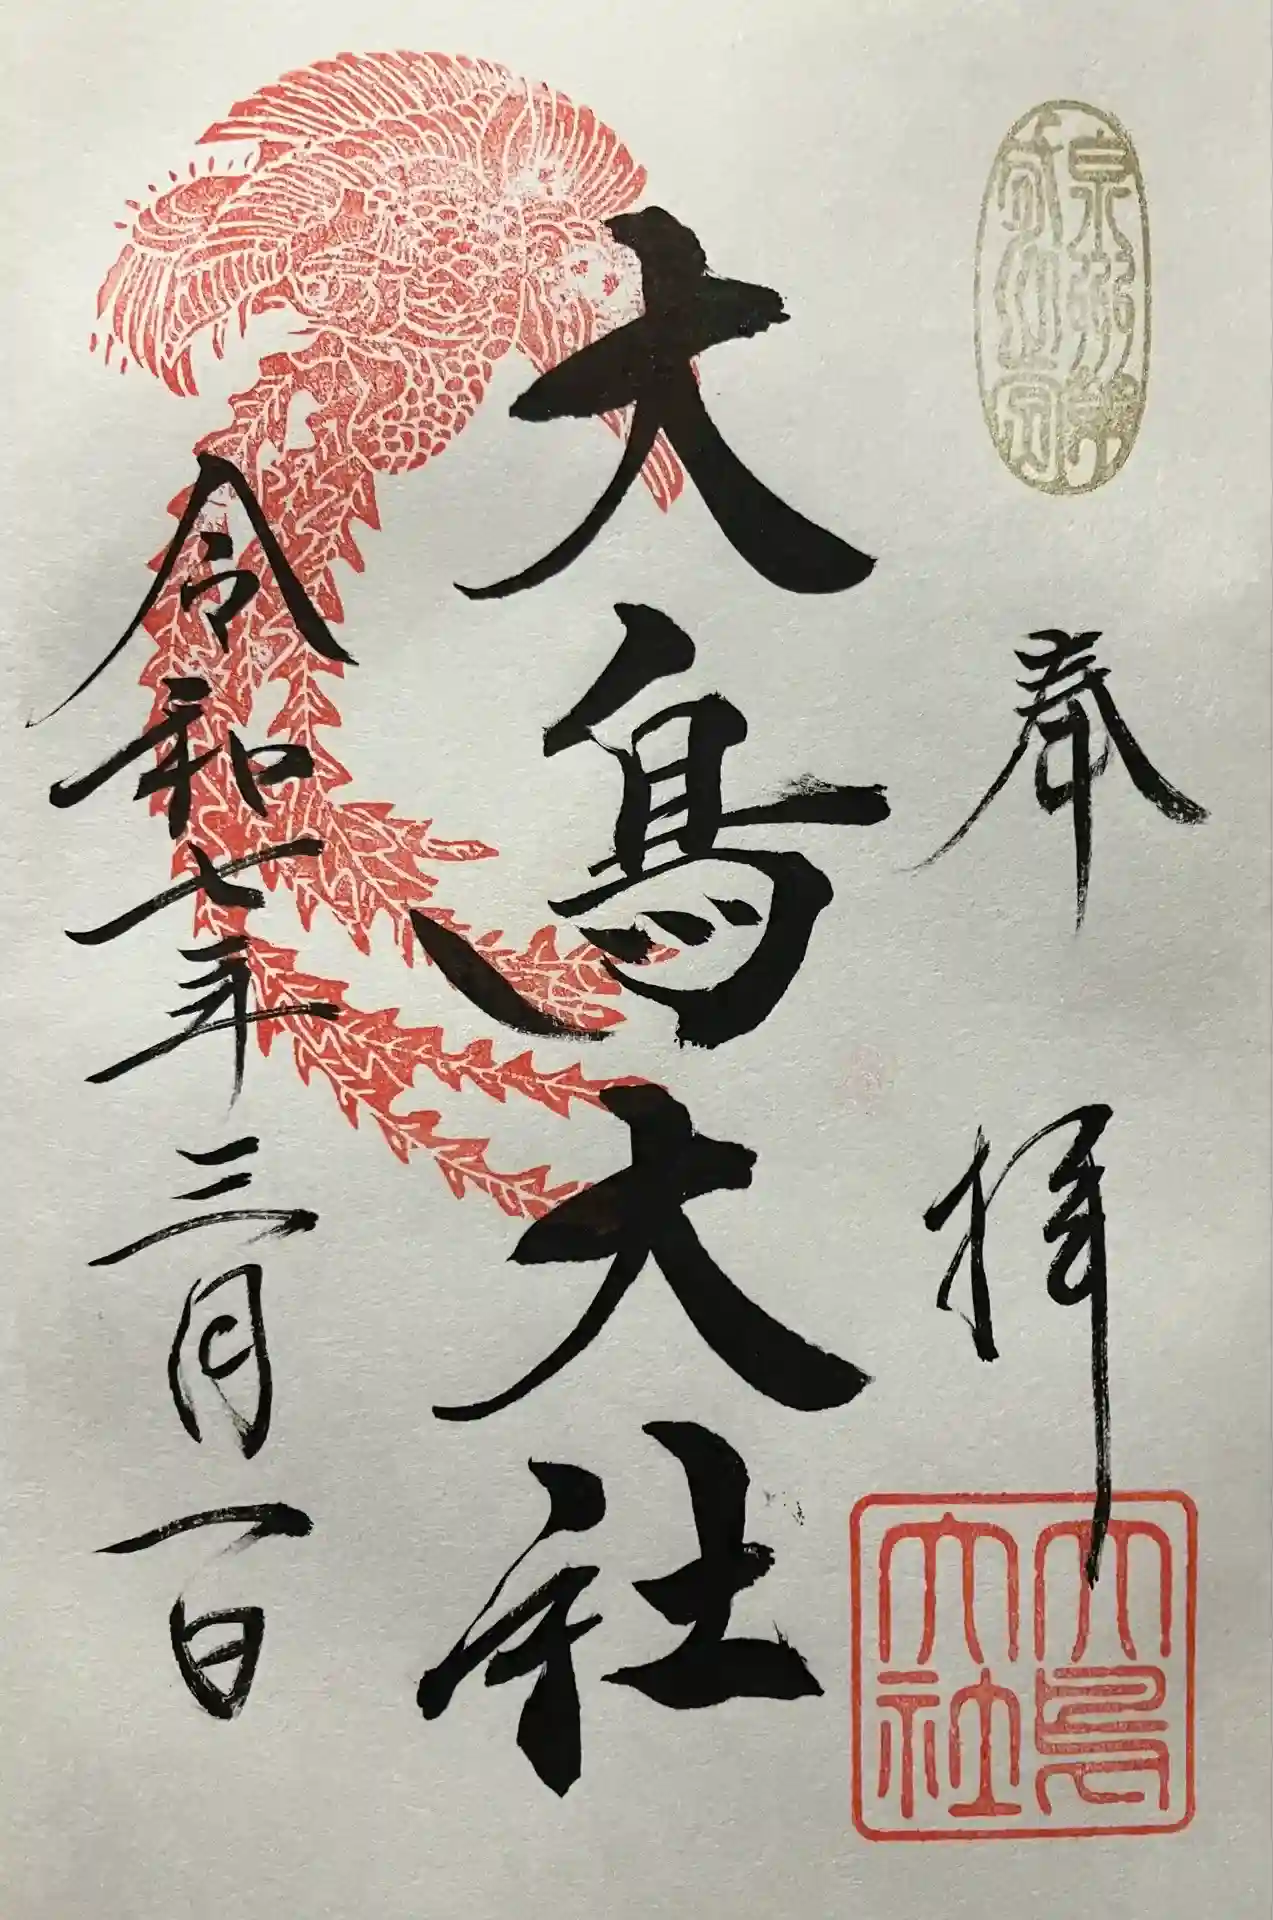 奉拝
大鳥大社
大鳥大社
令和七年三月一日